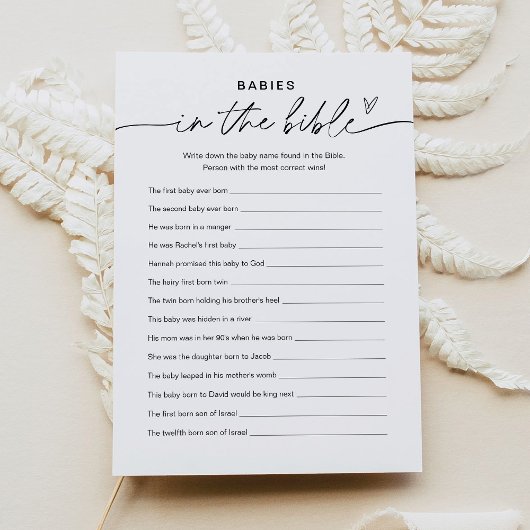 BABIES
in the bible
Write down the baby name found in the Bible.
Person with the most correct wins!
The first baby ever born
The second baby ever born
He was born in a manger
He was Rachel's first baby
Hannah promised this baby to God
The hairy first born twin
The twin born holding his brother's heel
This baby was hidden in a river
His mom was in her 90's when he was born
She was the daughter born to Jacob
The baby leaped in his mother's womb
This baby born to David would be king next
The first born son of Israel
The twelfth born son of Israel